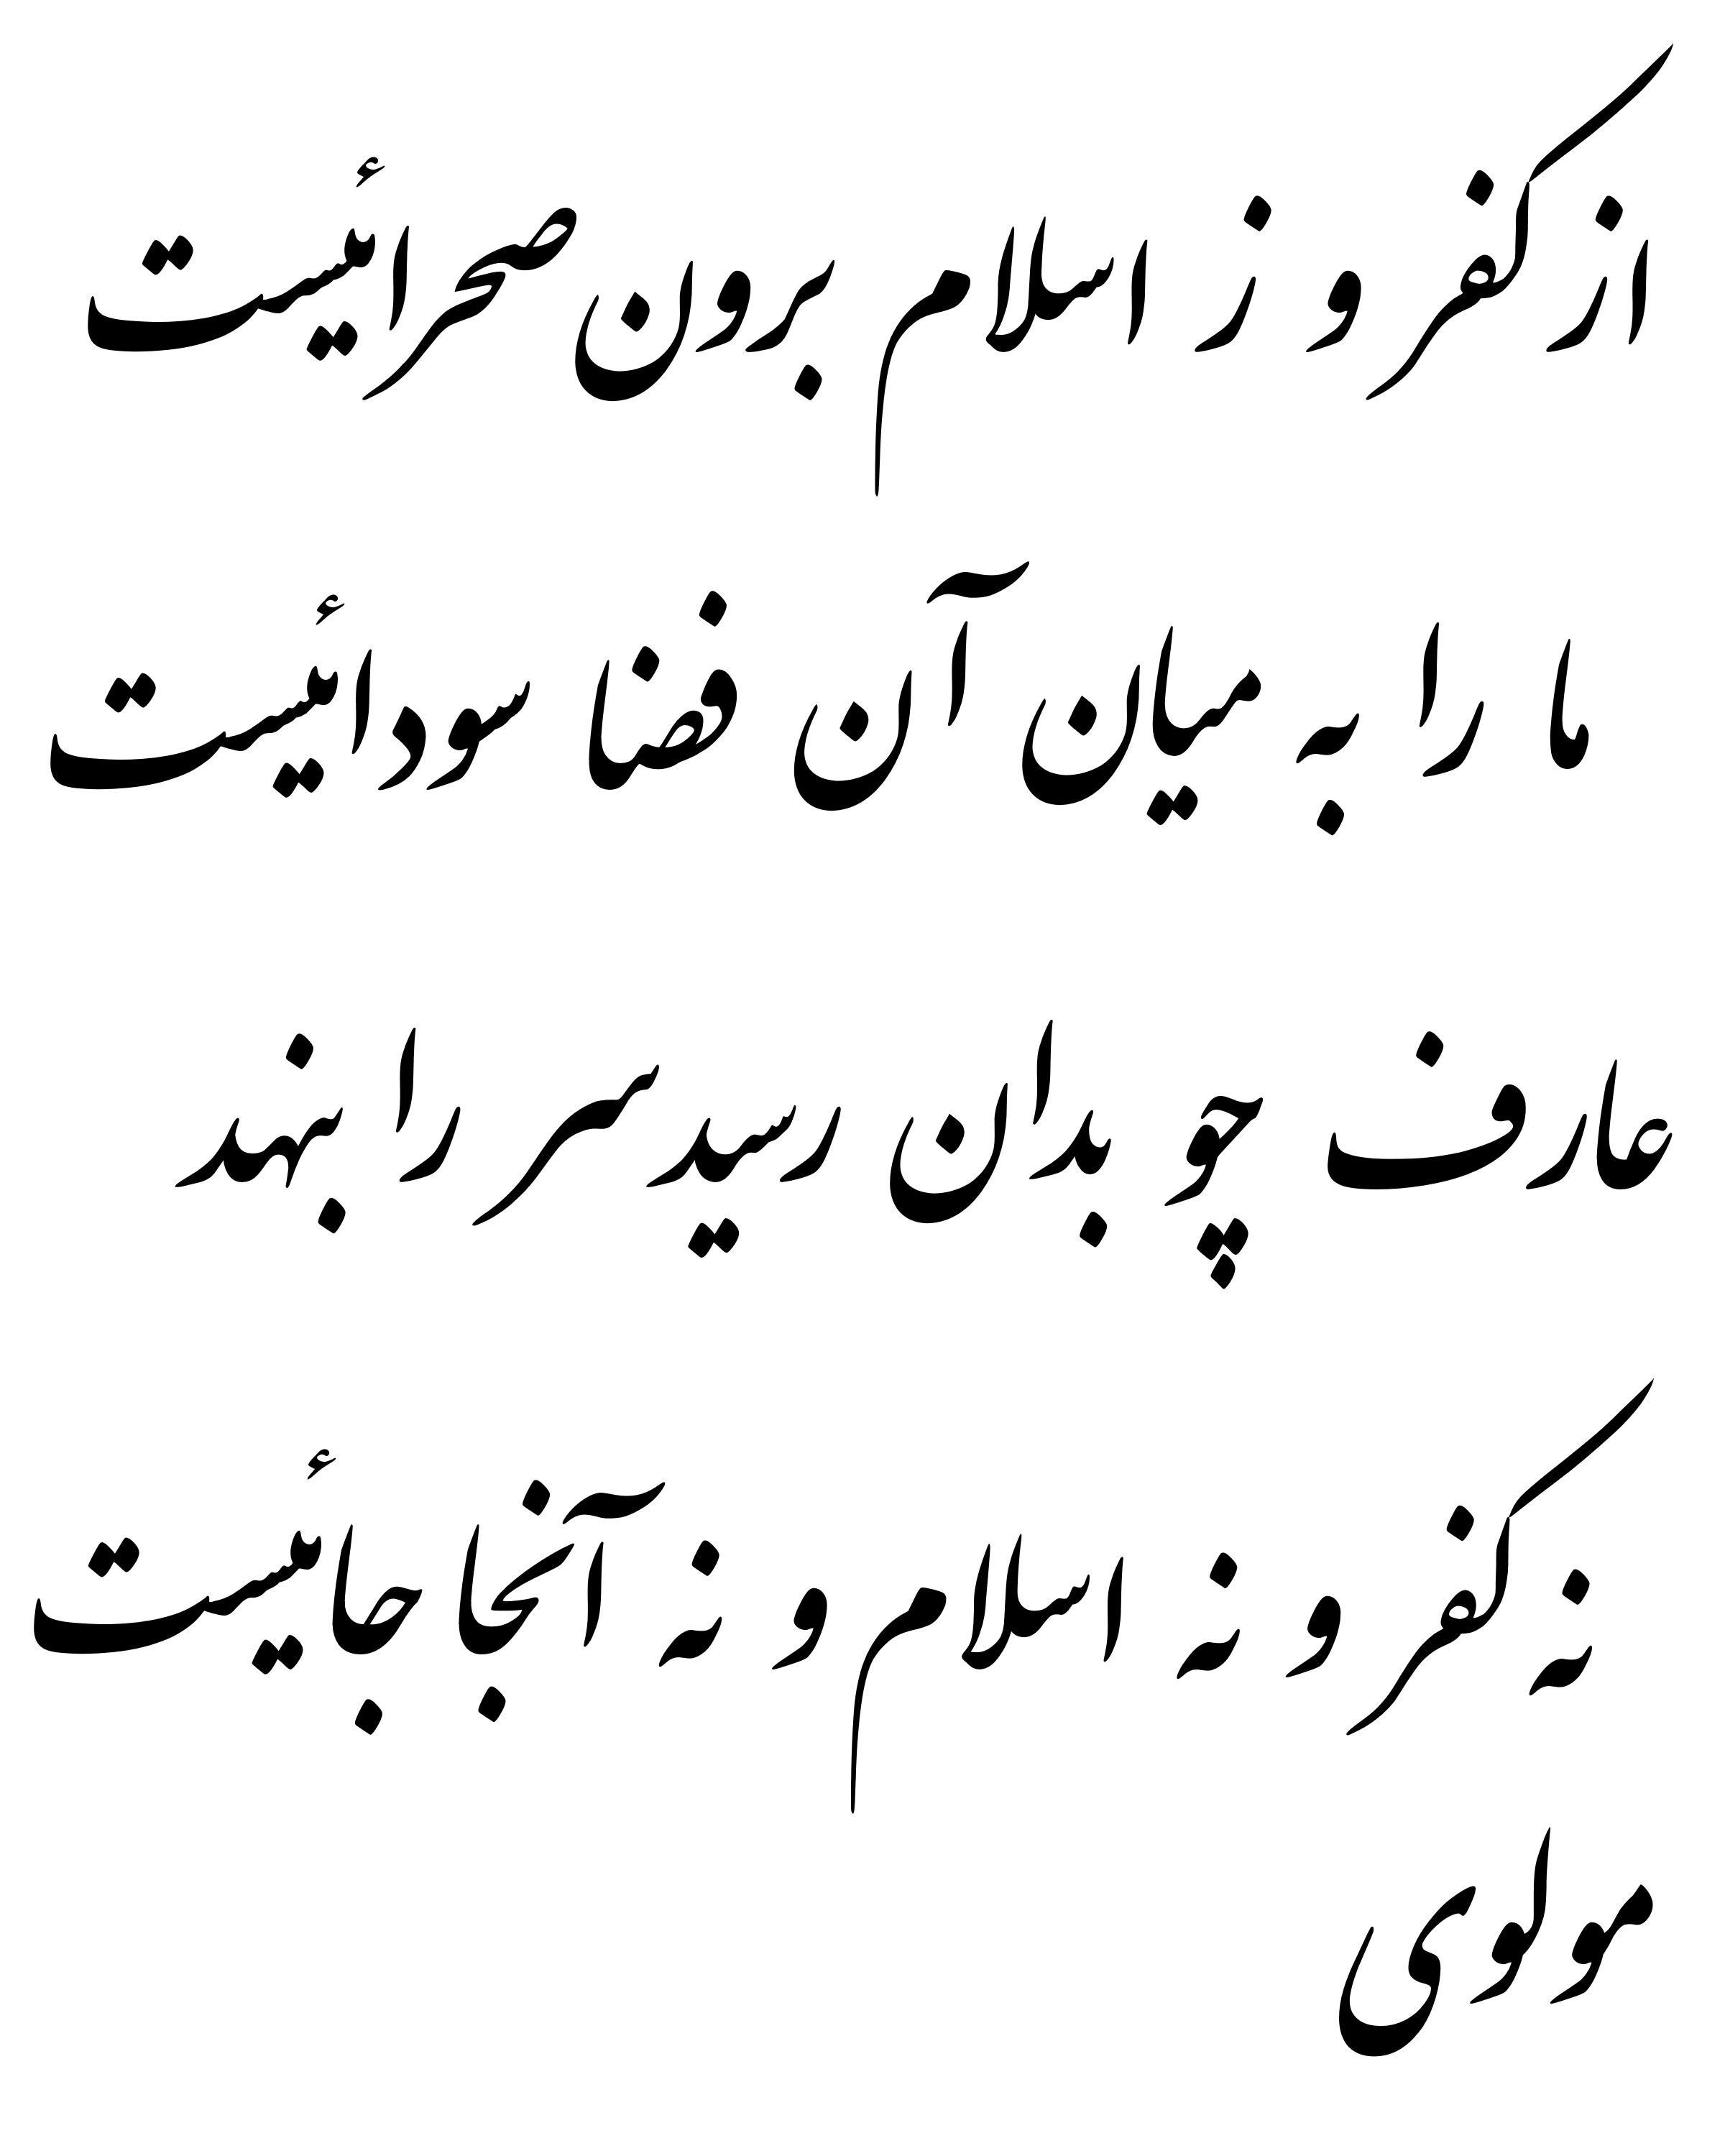 از کفر و ز اسلام برون صحرائیست
ما را به میان آن فضا سودائیست
عارف چو بدان رسید سر را بنهد
نه کفر و نه اسلام و نه آنجا جائیست
مولوی